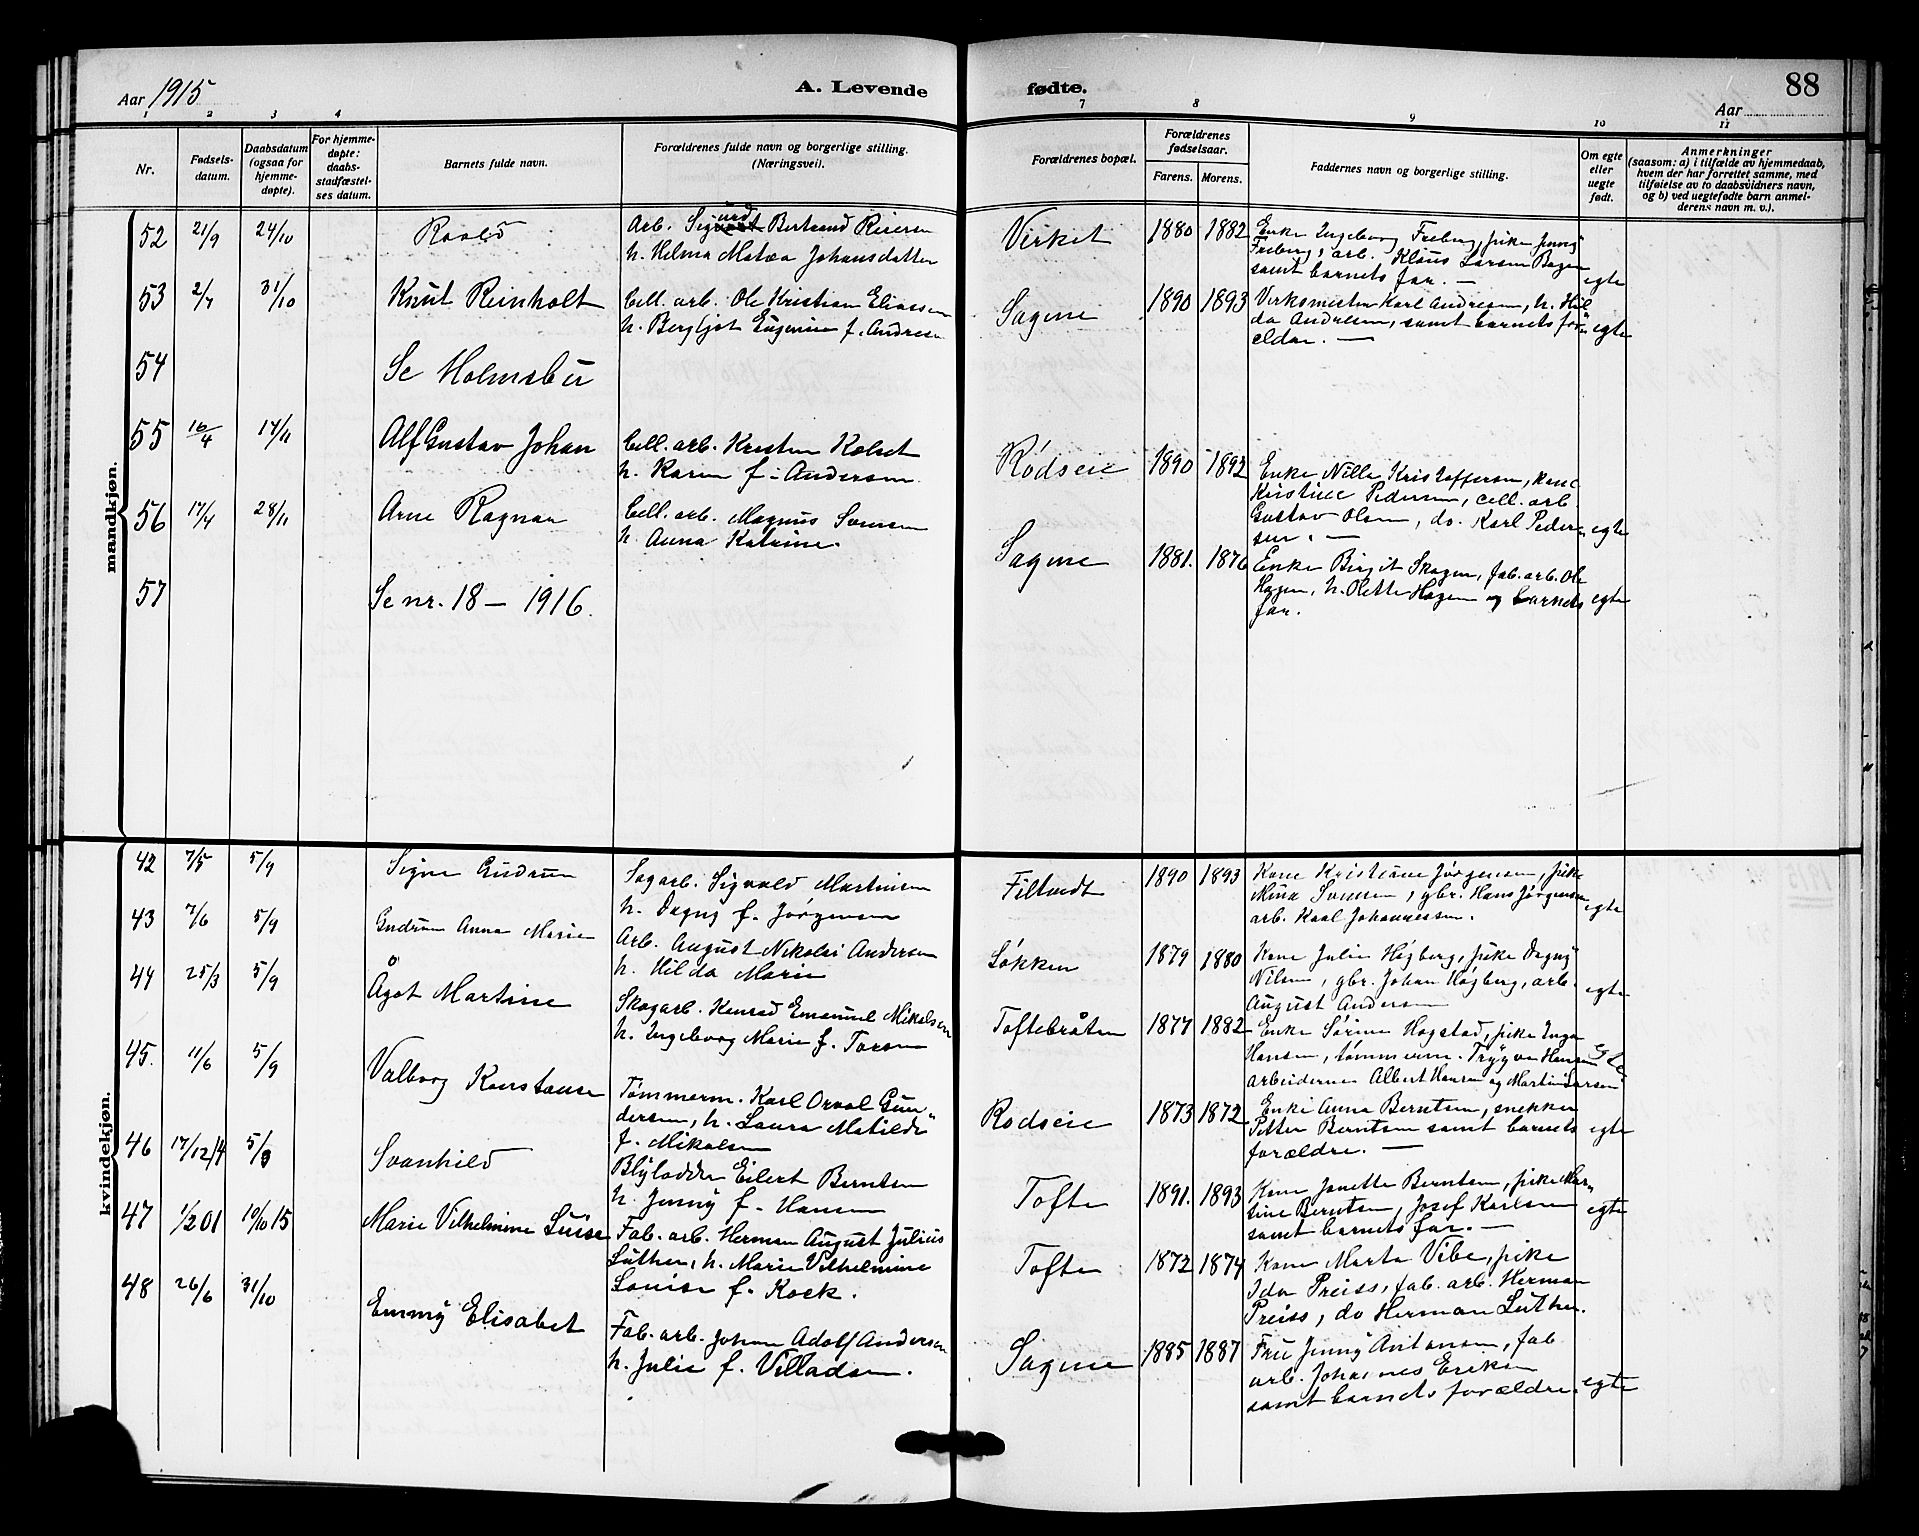 Aar 1915
A. Levende
fødte.
88
Aar
1 2 3 4
7 8 9 10 11
Nr.
Fødsels-
datum.
Daabsdatum
(ogsaa for
hjemme-
døpte).
For hjemme-
døpte:
daabs-
stadfæstel-
ses datum.
Barnets fulde navn.
Forældrenes fulde navn og borgerlige stilling.
(Næringsvei).
Forældrenes bopæl.
Forældrenes
fødselsaar.
Farens. Morens.
Faddernes navn og borgerlige stilling.
Om egte
eller
uegte
født.
Anmerkninger
(saasom: a) i tilfælde av hjemmedaab,
hvem der har forrettet samme, med
tilføielse av to daabsvidners navn,
og b) ved uegtefødte barn anmel-
derens navn m. v.).
mandkjøn.
52 21/9 24/10 Roald
Arb. Sigurd Bertrand Reiersen
h. Helma Matea Johansdatter
Virket 1880 1882
Enke Ingeborg Freberg, pike Jenny
Freberg, arb. Klaus Larsen Bogen
samt barnets far. — egte
53 2/7 31/10 Knut Reinholt
Cell. arb. Ole Kristian Eliassen
h. Bergljot Eugenie f. Andresen
Sagene 1890 1893
Verksmester Karl Andresen, h. Hil
da Andresen, samt barnets for
eldre. — egte
54 Se Holmsbu
55 16/4 14/11 Alf Gustav Johan
Cell. arb. Kresten Kolset
h. Karen f. Andersen
Rödseie 1890 1892
Enke Nille Kristoffersen, kone
Kristine Pedersen, cell. arb.
Gustav Olsen, do. Karl Peder
sen. — egte
56 17/4 28/11 Arne Ragnar
Cell. arb. Magnus Svensen
h. Anna Katrine.
Sagene 1881. 1876
Enke Birgit Skogen, fab. arb. Ole
Hagen, h. Olette Hagen og barnets
far. egte
57 Se nr. 18 — 1916.
kvindekjøn.
42 7/5 5/9 Signe Gudrun
Sagarb. Sigvald Martinsen
h. Dagny f. Jørgensen
Filtvedt 1890 1893
Kone Kristiane Jørgensen, pike
Mina Svensen, gbr. Hans Jørgensen
arb. Karl Johannessen. egte
43 7/6 5/9 Gudrun Anna Marie
Arb. August Nikolai Andersen
h. Hilda Marie
Løkken 1879 1880
Kone Julie Høgberg, pike Dagny
Nilsen, gbr. Johan Høgberg, arb.
August Andersen egte
44 25/3 5/9 Ågot Martine
Skogarb. Konrad Emanuel Mikalsen
h. Ingeborg Marie f. Torsen
Toftebråten 1877 1882
Enke Sørine Hogstad, pike Inga
Hansen, tømmerm. Trygve Hansen
arbeiderne Albert Hansen og Martin Larsen egte
45. 11/6 5/9 Valborg Konstanse
Tømmerm. Karl Orval Gun
dersen, h. Laura Matilde
f. Mikalsen
Rødseie 1873 1872
Enke Anna Berntsen, snekker
Petter Berntsen samt barnets
forældre. — egte
46 17/12 14 5/9 Svanhild
Blylodder Eilert Berntsen
h. Jenny f. Hansen
Tofte 1891. 1893
Kone Janette Berntsen, pike Mar
tine Berntsen, Josef Karlsen
samt barnets far. — egte
47 1/2 01 10/10 15 Marie Vilhelmine Luise
Fab. arb. Herman August Julius
Luther, h. Marie Vilhelmine
Louise f. Kock.
Tofte 1872 1874
Kone Marta Vibe, pike
Ida Preiss, fab. arb. Herman
Preiss, do Herman Luther.
48 26/6 31/10 Emmy Elisabet
Fab. arb. Johan Adolf Andersen
h. Julie f. Villadsen.
Sagene 1885 1887
Fru Jenny Antonsen, fab
arb. Johannes Eriksen
samt barnets forældre. egte